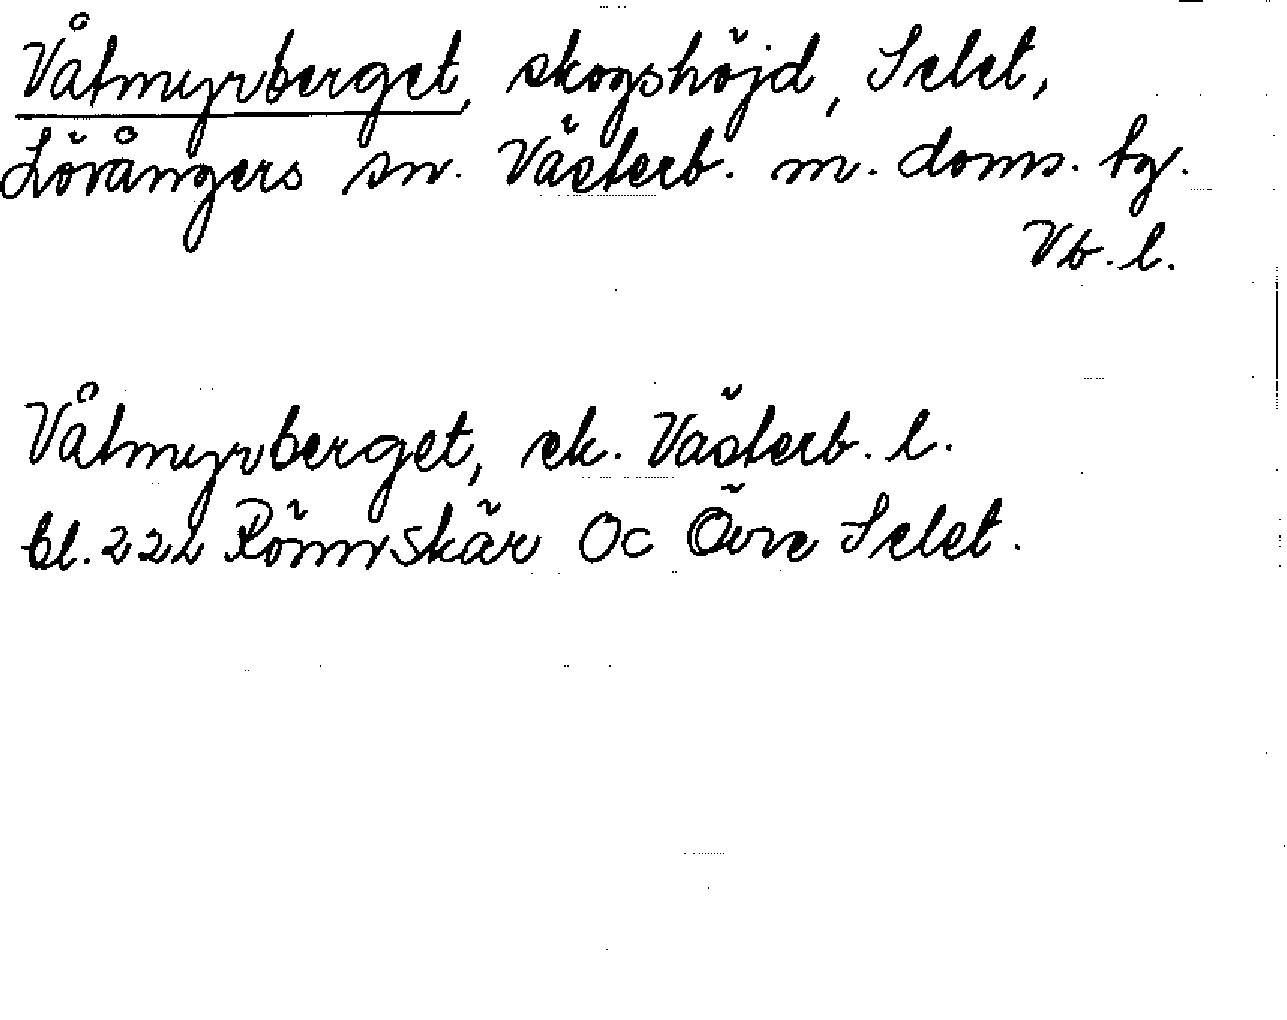 Våtmyrberget, skogshöjd, Selet,
Lövångers sn. Västerb. m. doms. tg.
Vb. l.
Våtmyrberget, ek. Västerb. l.
bl. 222 Rönnskär Oc Övre Selet.